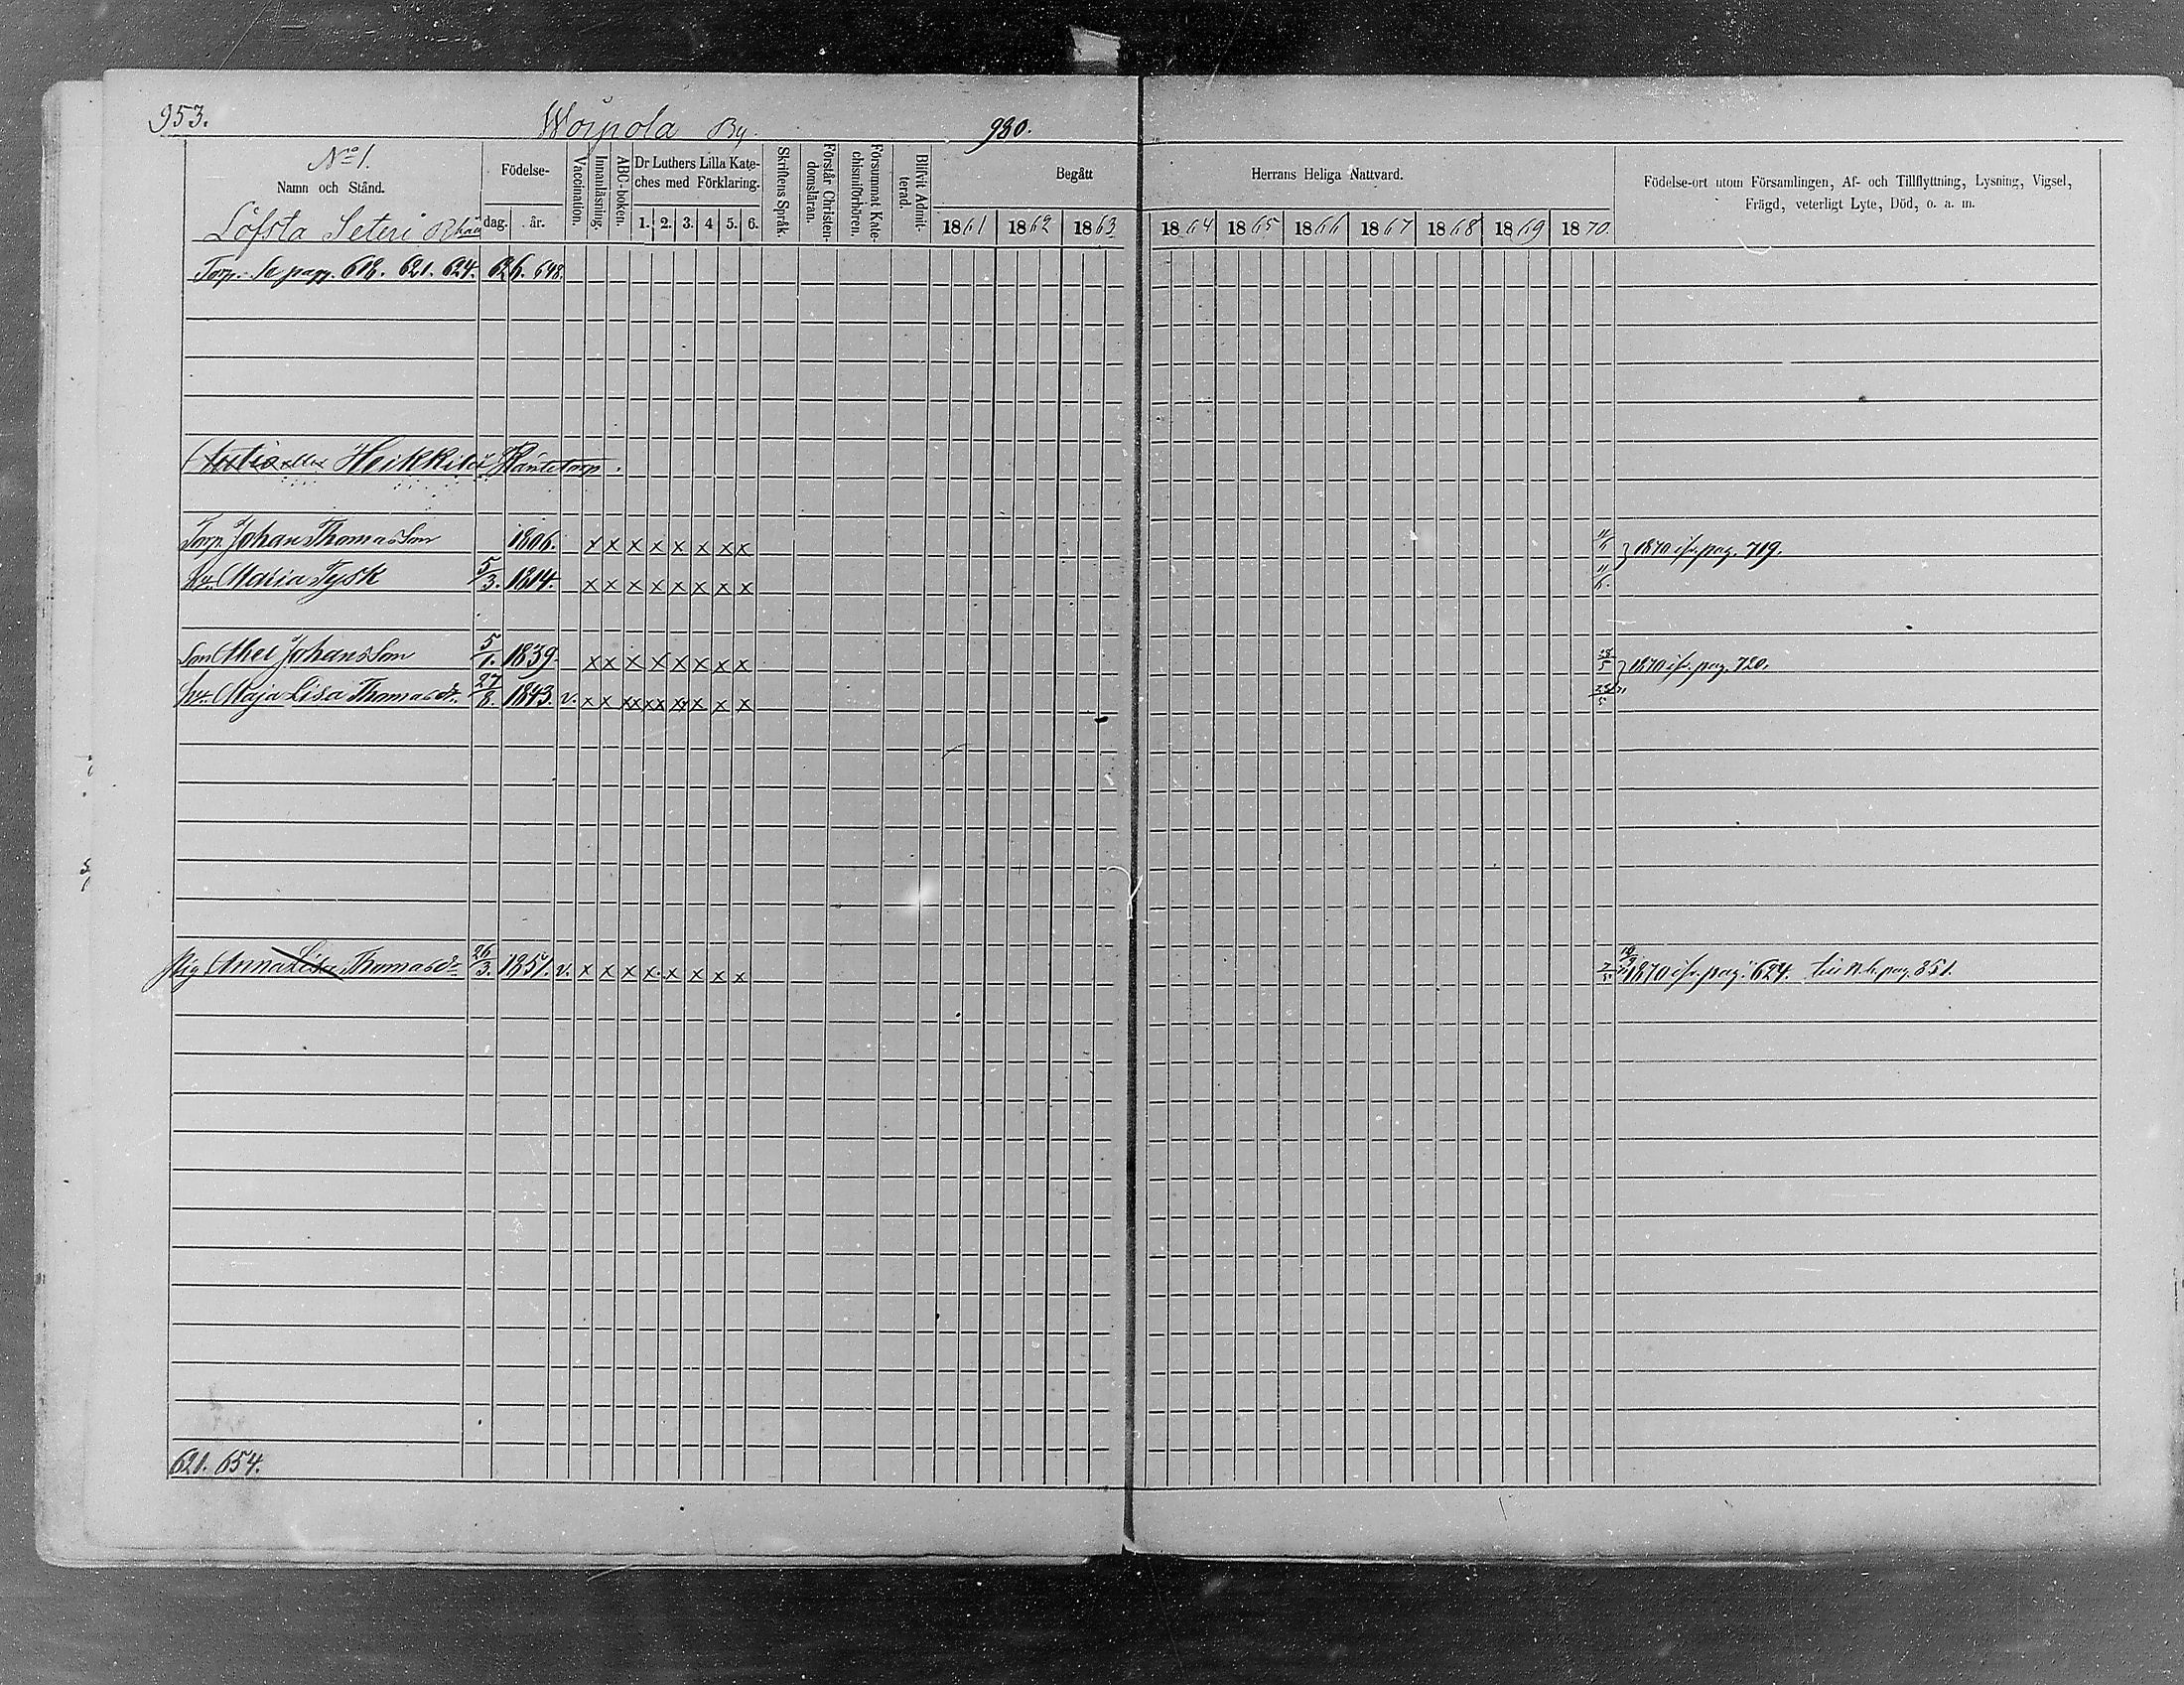 953.
Woipola By.
980.
No 1.
Namn och Stånd.
Löfsta Seteri
Födelse-
dag. år.
Vaccination.
Innanläsning.
ABC-boken.
Dr Luthers Lilla Kate-
ches med Förklaring.
1. 2. 3. 4 5. 6.
Skriftens Språk.
Förstår Christen-
domsläran.
Försummat Kate-
chismiförhören.
Blifvit Admit-
terad.
Begått Herrans Heliga Nattvard.
1861 1862 1863 1864 1865 1866 1867 1868 1869 1870.
Födelse-ort utom Församlingen, Af- och Tillflyttning, Lysning, Vigsel,
Frägd, veterligt Lyte, Död, o. a. m.
Torp. se pagg. 618. 621. 624. 626. 648.
Heikkilä Räntetorp.
Torp. Johan Thomasson 1806. x x x x x x x x 1870 ifr. pag. 719.
hu. Maria Tysk 5/3. 1814. x x x x x x x x
Son Abel Johansson 5/1. 1839. x x x x x x x x 28/5 1870 ifr. pag. 720.
hu. Maja Lisa Thomasdr. 27/8. 1843. v. x x xx xx xx x x x
Pig. Anna Lisa Thomasdr 26/3. 1851. v. x x x x x x x x 1870 ifr. pag. 624. till n. b. pag. 851.
621. 654.